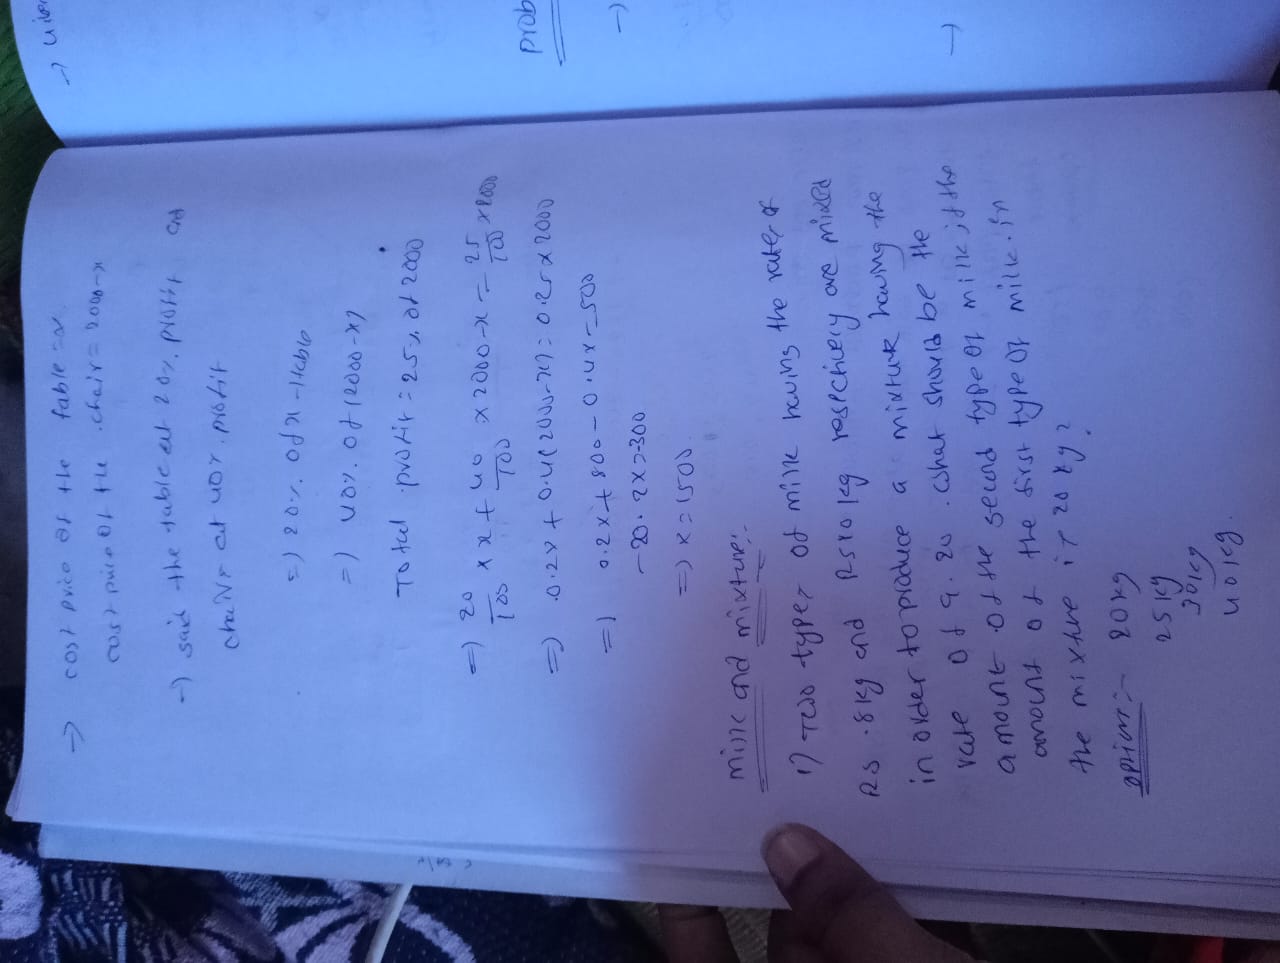 → cost price of the table = x
cost price of the chair = 2000-x
→ said the table at 20%. profit and
chairs at 40%. profit
=) 20%. of x - table
=) 40%. of (2000-x)
Total profit = 25%. of 2000
=) 20/100 × x + 40/100 × 2000-x = 25/100 × 2000
=) 0.2x + 0.4(2000-x) = 0.25 × 2000
=) 0.2x + 800 - 0.4x = 500
-20.2x = -300
=) x = 1500.
milk and mixture:-
1) Two types of milk having the rates of
RS.8kg and RS10kg respectively are mixed
in order to produce a mixture having the
rate of 9.20. what should be the
amount of the second type of milk, if the
amount of the first type of milk. in
the mixture is 20 kg?
option:- 20kg
25kg
30kg
40kg.
prob
→
→